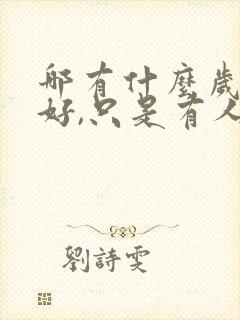 哪有什麼歲
好,只是有人
劉詩雯